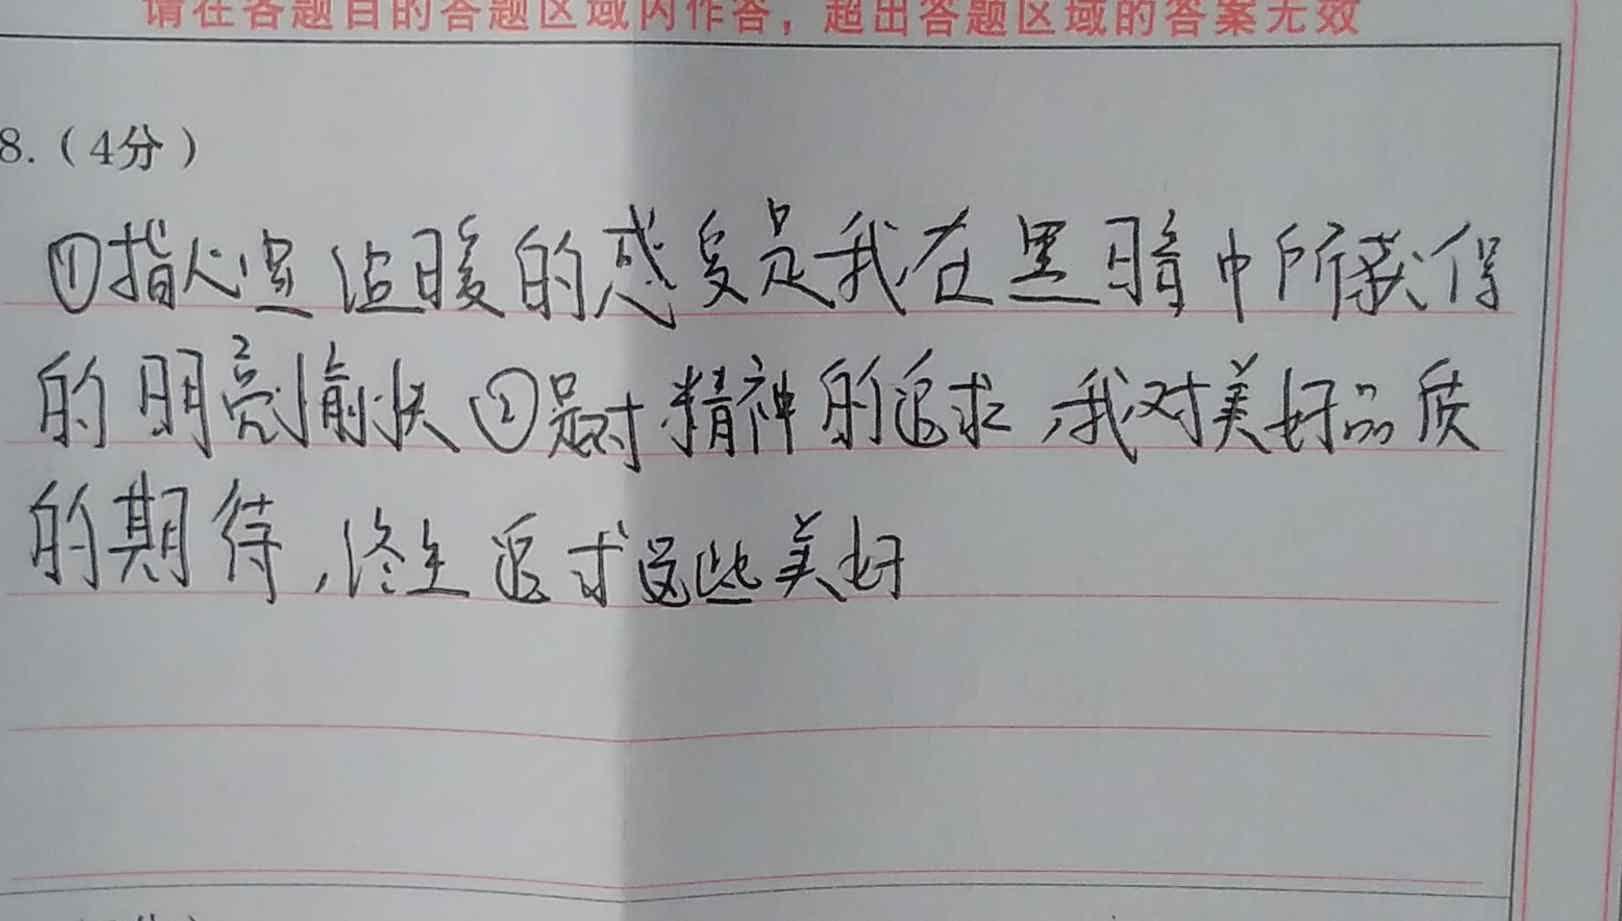 请在各题目的答题区域内作答，超出答题区域的答案无效
8.（4分）
①指心里温暖的感受是我在黑暗中所获得
的明亮愉快②是对精神的追求,我对美好品质
的期待,终生追求这些美好